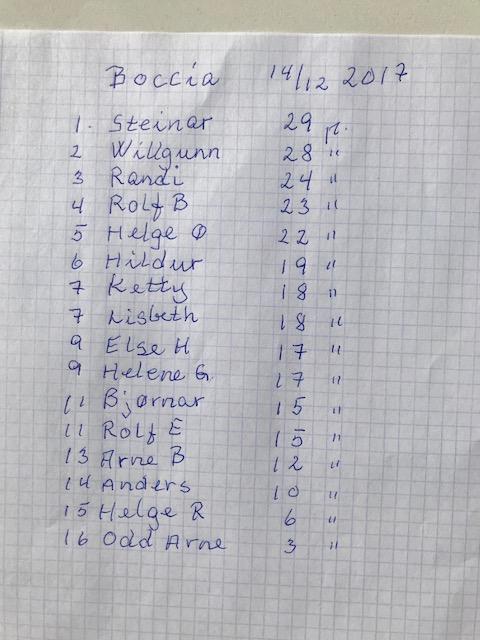 Boccia 14/12 2017
1. Steinar 29 p.
2 Willgunn 28 "
3 Randi 24 "
4 Rolf B 23 "
5 Helge Ø 22 "
6 Hildur 19 "
7 Ketty 18 "
7 Lisbeth 18 "
9 Else H 17 "
9 Helene G. 17 "
11 Bjørnar 15 "
11 Rolf E 15 "
13 Arne B 12 "
14 Anders 10 "
15 Helge R 6 "
16 Odd Arne 3 "